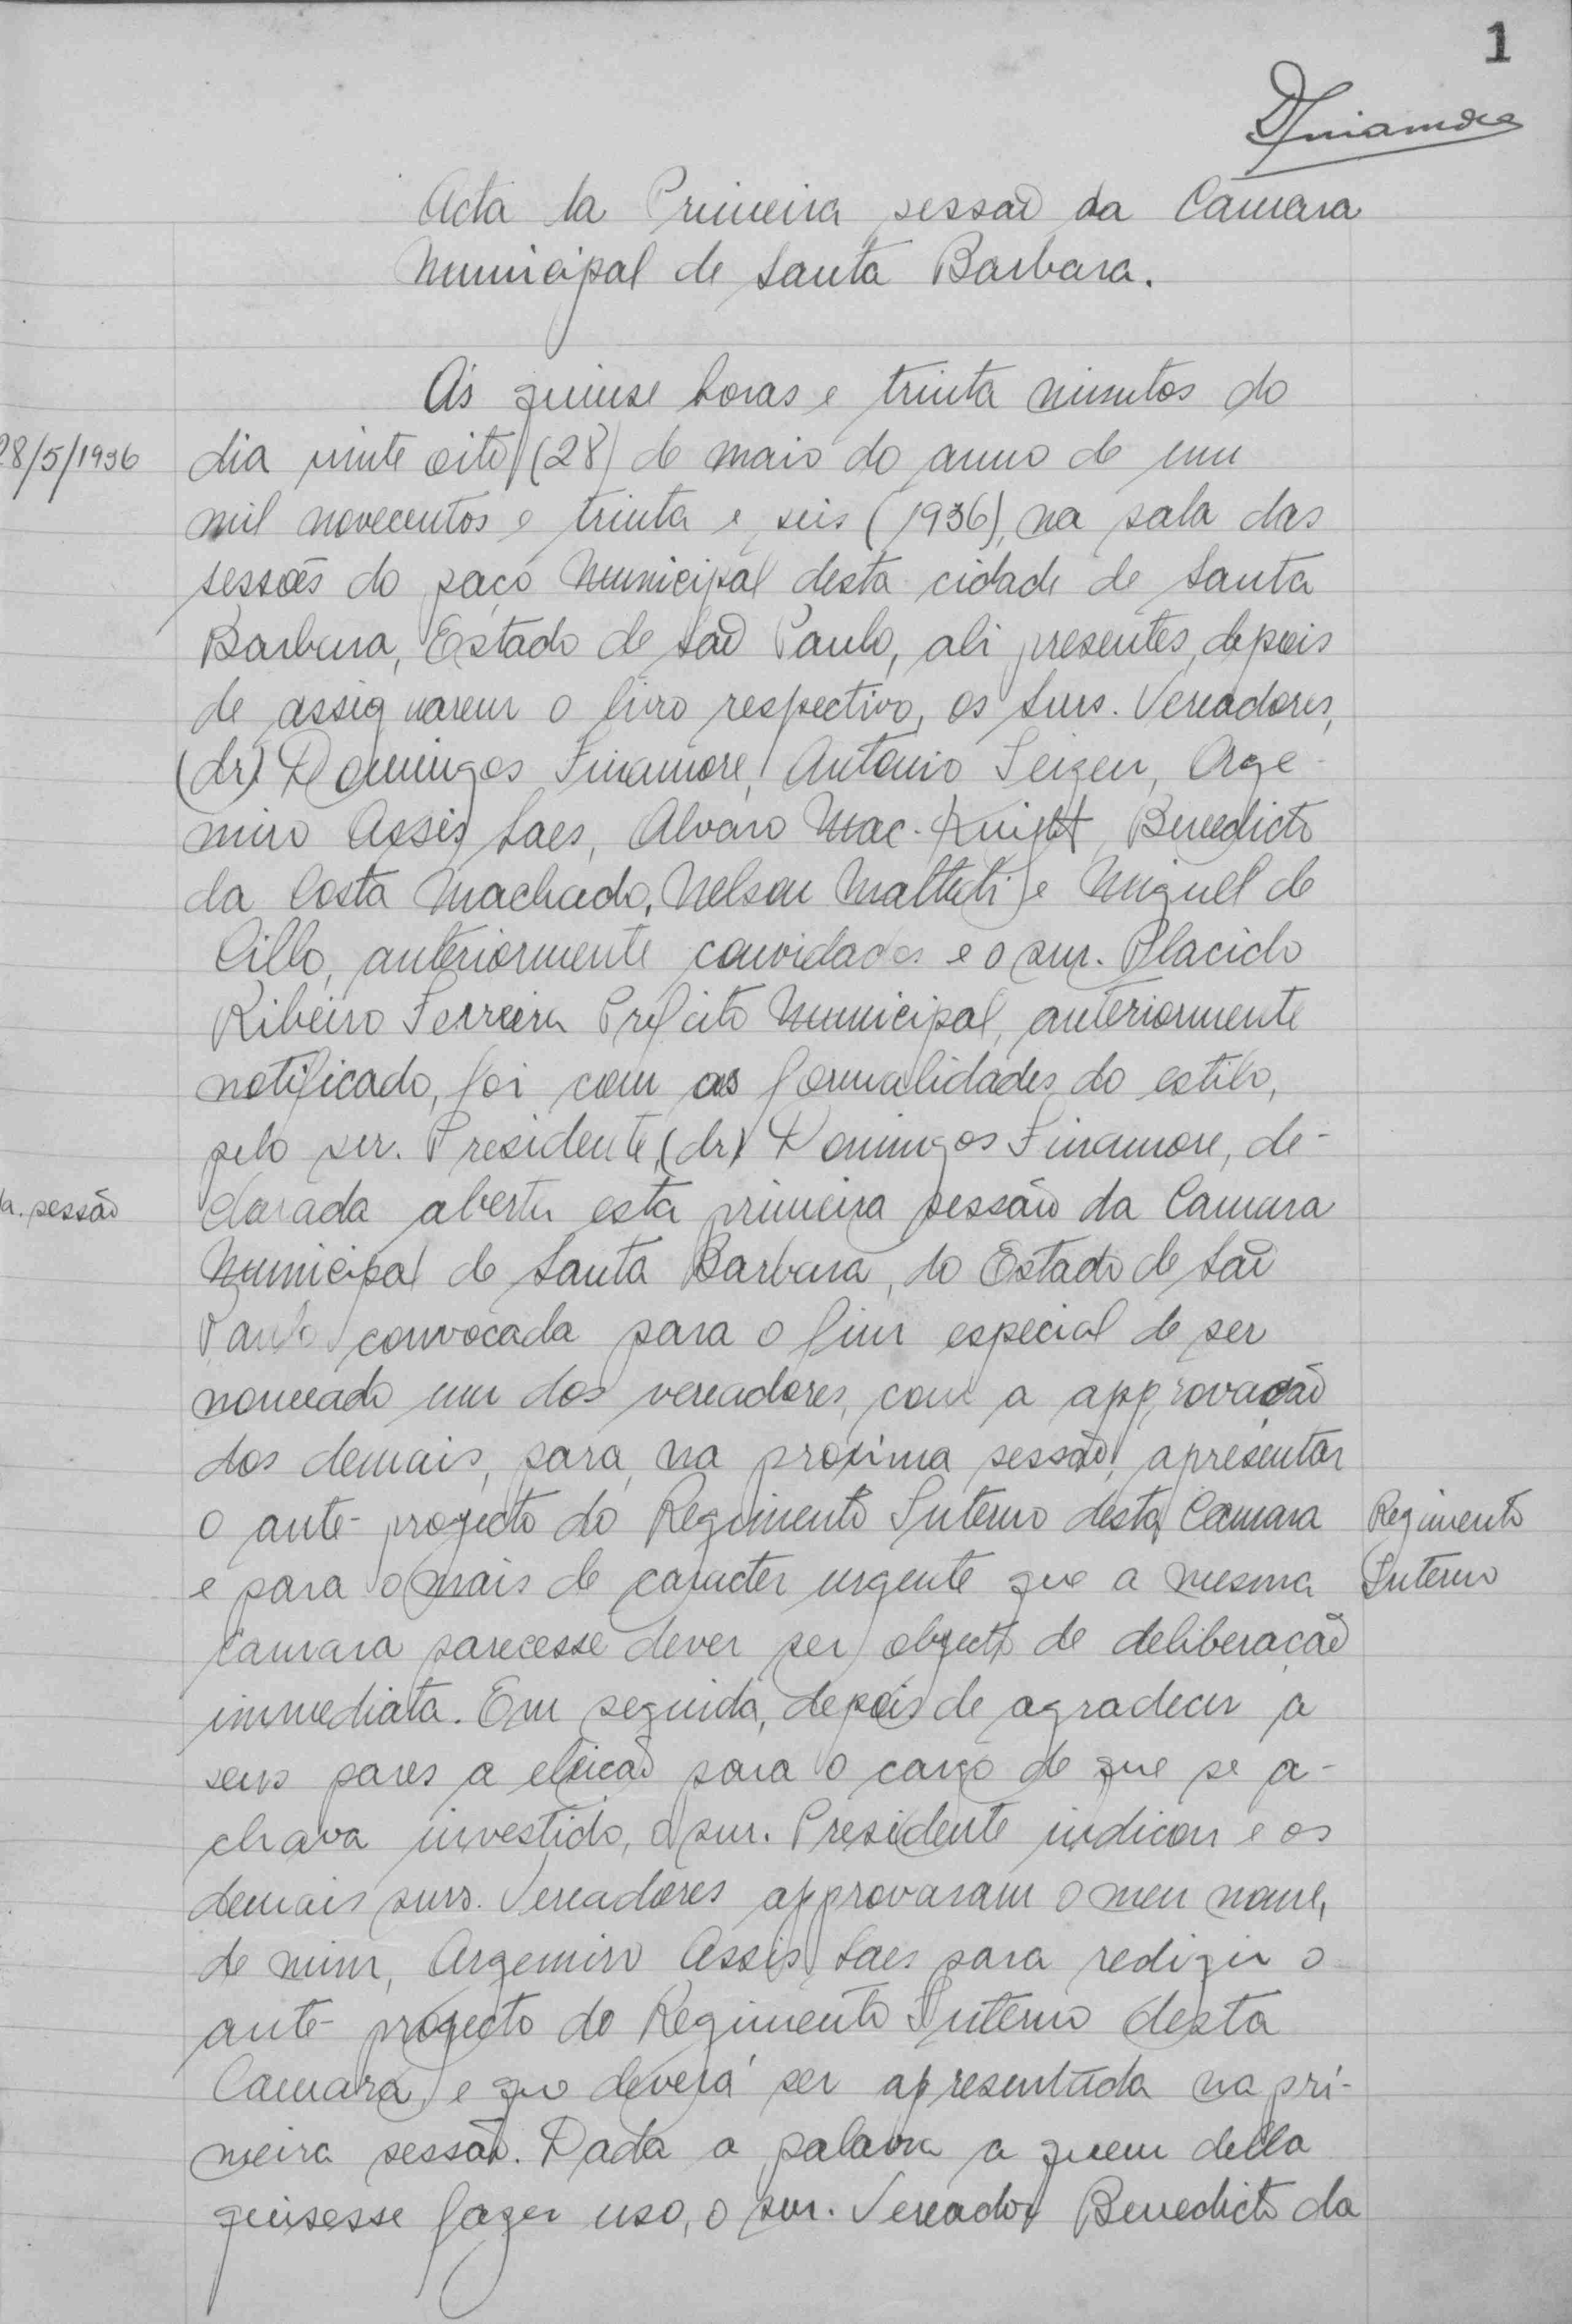 1
DFinamore
Acta da Primeira sessaõ da Câmara
Municipal de Santa Barbara.
Ás quinse horas e trinta minutos do
28/5/1936
dia vinte oito (28) de maio do anno de um
mil novecentos e trinta e seis (1936), na sala das
sessoẽs do paço Municipal desta cidade de Santa
Barbara, Estado de Saõ Paulo, ali presentes, depois
de assignarem o livro respectivo, os Snrs. Vereadores,
(dr) Domingos Finamore, Antonio Seigen, Arge-
miro Assis Saes, Alvaro Mac-Knight, Benedicto
da Costa Machado, Nelson Mattedi e Miguel de
Cillo, anteriormente convidados e o snr. Placido
Ribeiro Ferreira Prefeito Municipal, anteriormente
notificado, foi com as formalidades do estilo,
pelo snr. Presidente, (dr) Domingos Finamore, de-
1a. sessão
clarada aberta esta primeira sessão da Camara
Municipal de Santa Barbara, do Estado de Saõ
Paulo convocada para o fim especial de ser
nomeado um dos vereadores, com a approvação
dos demais, para, na proxima sessão, apresentar
o ante-projecto do Regimento Interno desta Camara
Regimento
Interno
e para o mais de caracter urgente que a mesma
Camara parecesse dever ser objecto de deliberacaõ
immediata. Em seguida, depois de agradecer a
seus pares a eleicaõ para o cargo de que se a-
chava investido, o snr. Presidente indicou e os
demais snrs. Vereadores approvaram o meu nome,
de mim, Argemiro Assis Saes para redigir o
ante-projecto do Regimento Interno desta
Camara, e que deverá ser apresentada na pri-
meira sessão. Dada a palavra a quem della
quisesse fazer uso, o snr. Vereador Benedicto da